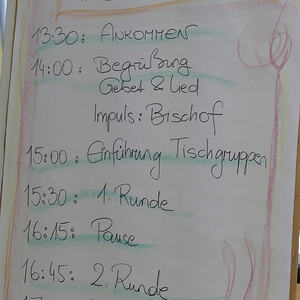 13:30: ANKOMMEN
14:00: Begrüßung
Gebet & Lied
Impuls: Bischof
15:00: Einführung Tischgruppen
15:30: 1. Runde
16:15: Pause
16:45: 2. Runde